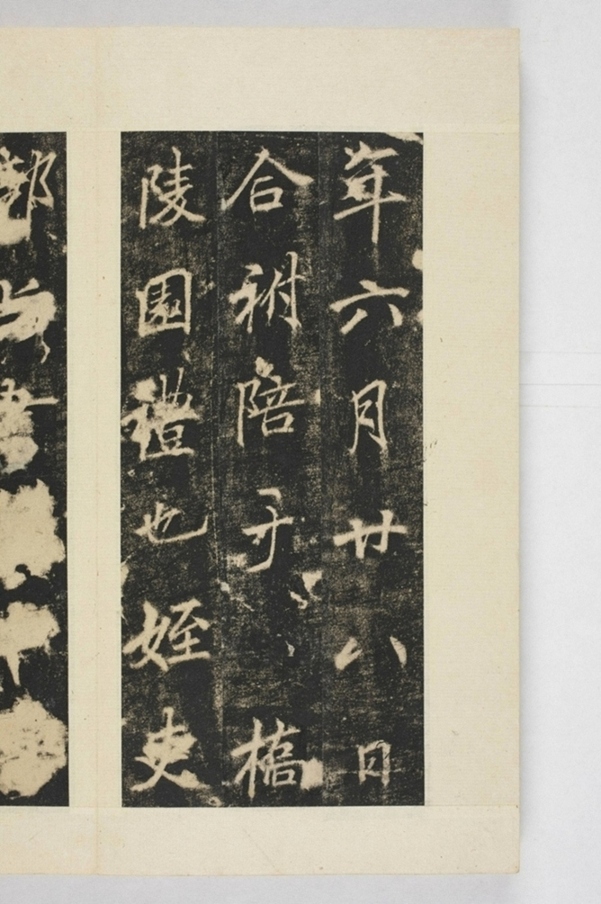 年六月廿八日
合祔陪于橋
陵園禮也姪吏
部